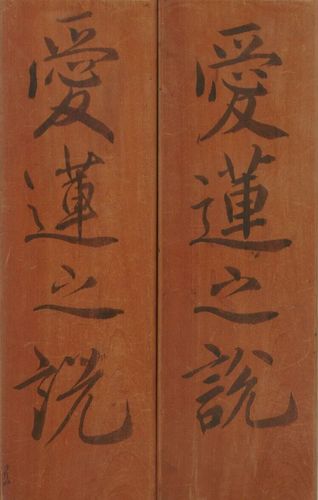 愛蓮之說
愛蓮之説